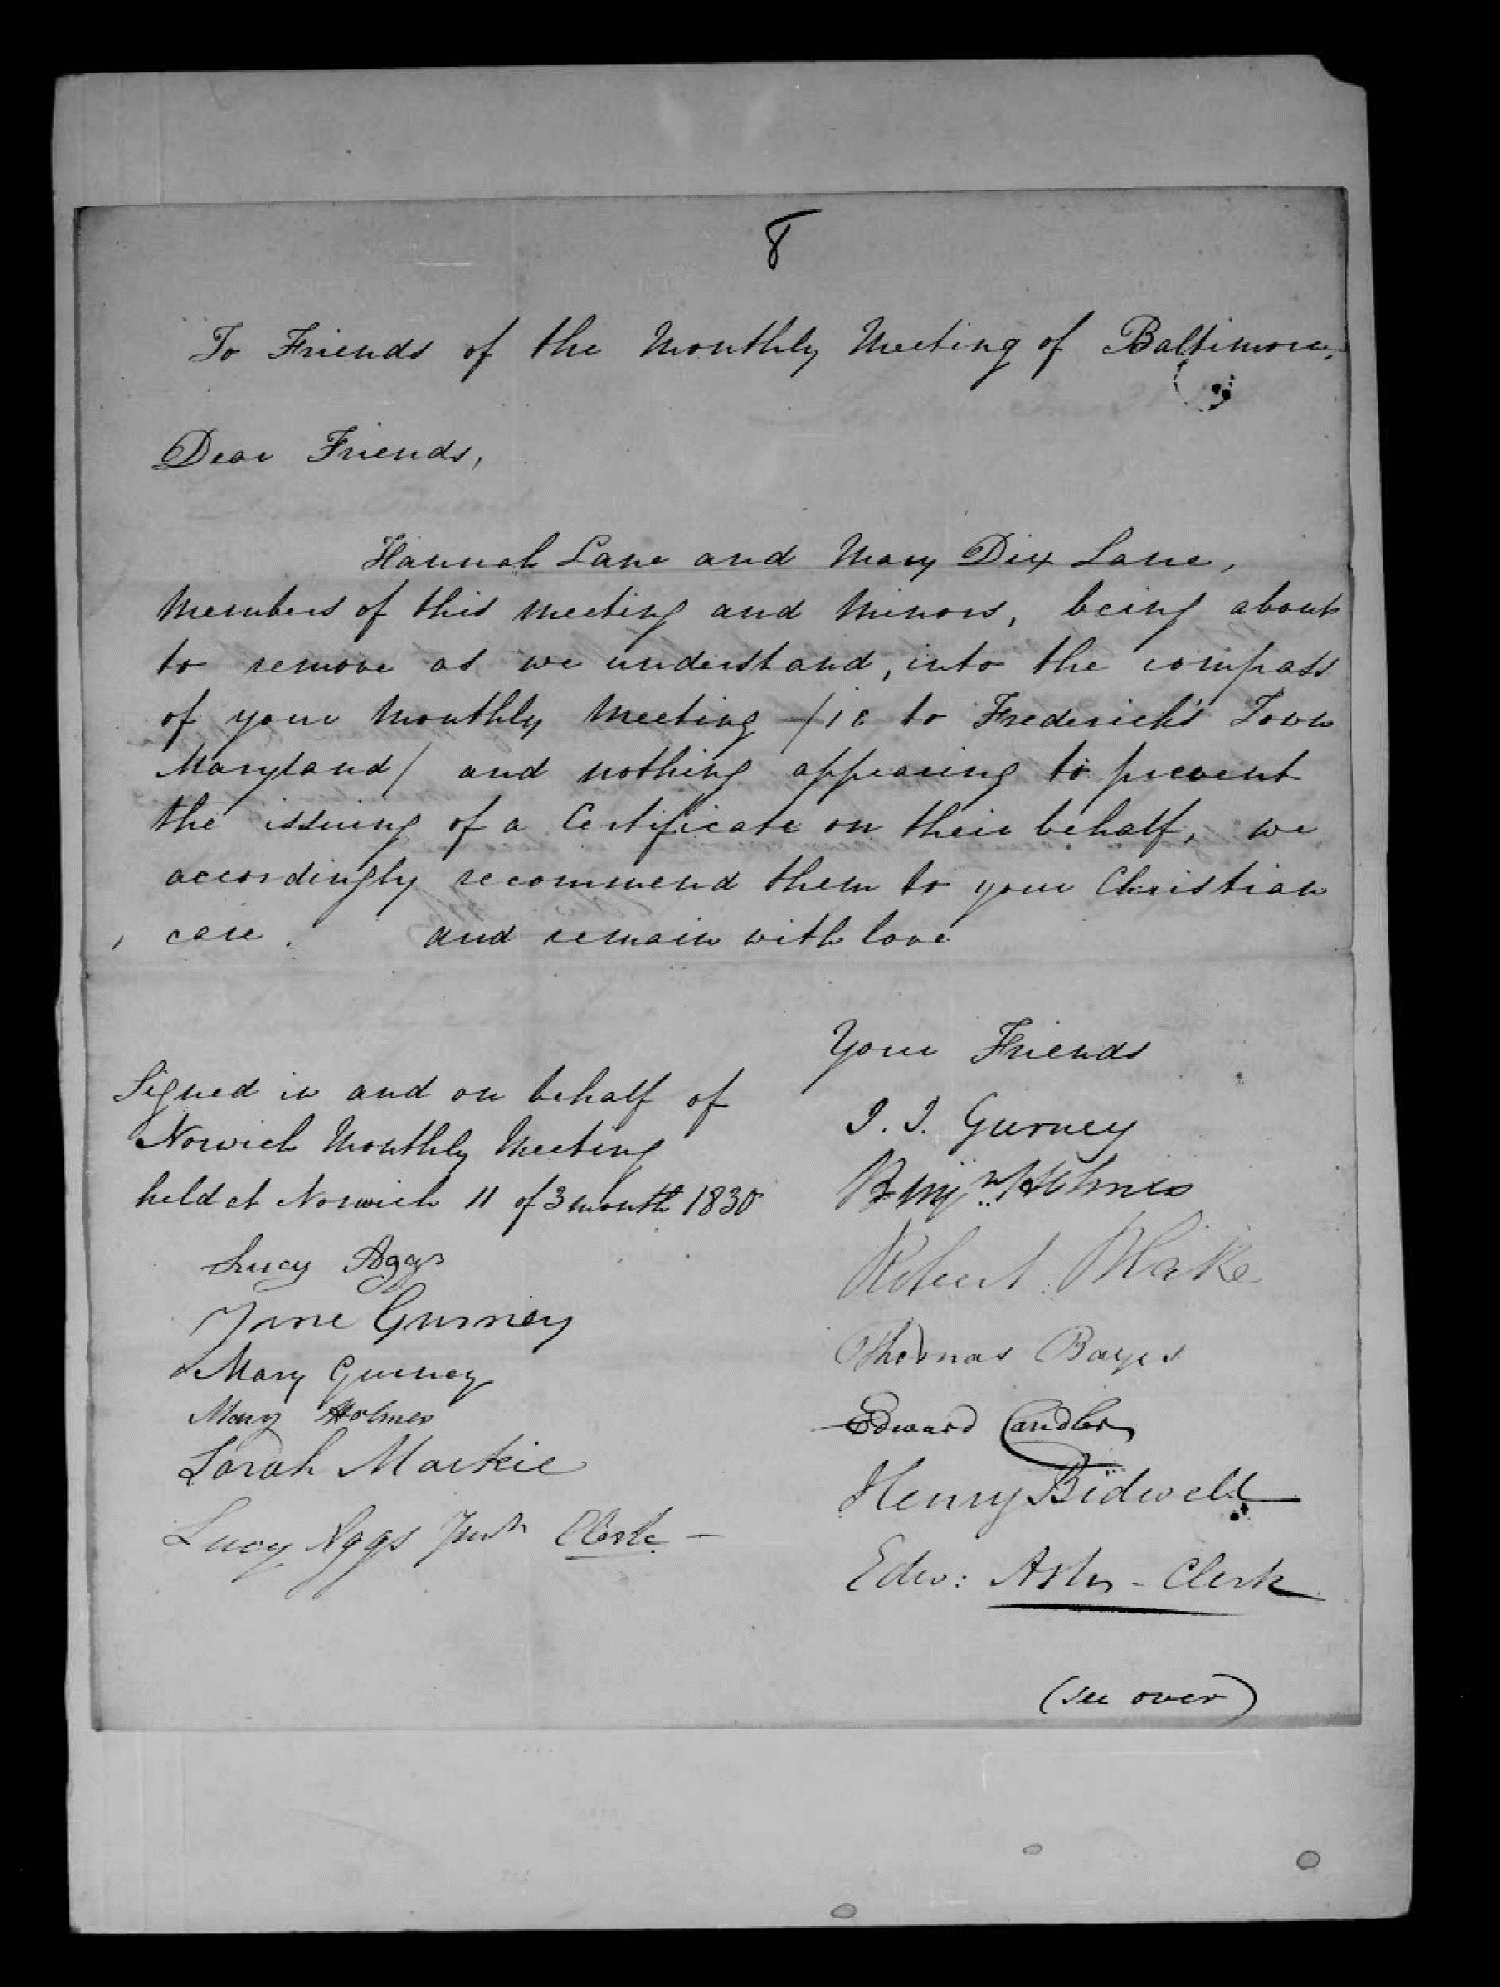 8
To Friends of the Monthly Meeting of Baltimore,
Dear Friends,
Hannah Lane and Mary Dix Lane,
Members of this meeting and Minors, being about
to remove as we understand, into the compass
of your Monthly Meeting /ie to Frederick's Town
Maryland/ and nothing appearing to prevent
the issuing of a Certificate on their behalf, we
accordingly recommend them to your Christian
care. and remain with love
Your Friends
Signed in and on behalf of
Norwich Monthly Meeting
held at Norwich 11 of 3 month 1830
Lucy Aggs
Jane Gurney
Mary Gurney
Mary Holmes
Sarah Mackie
Lucy Aggs Junr Clerk
J. J. Gurney
Benjn Holmes
Robert Blake
Thomas Bayes
Edward Candler
Henry Bidwell
Edw: Ash - Clerk
(see over)